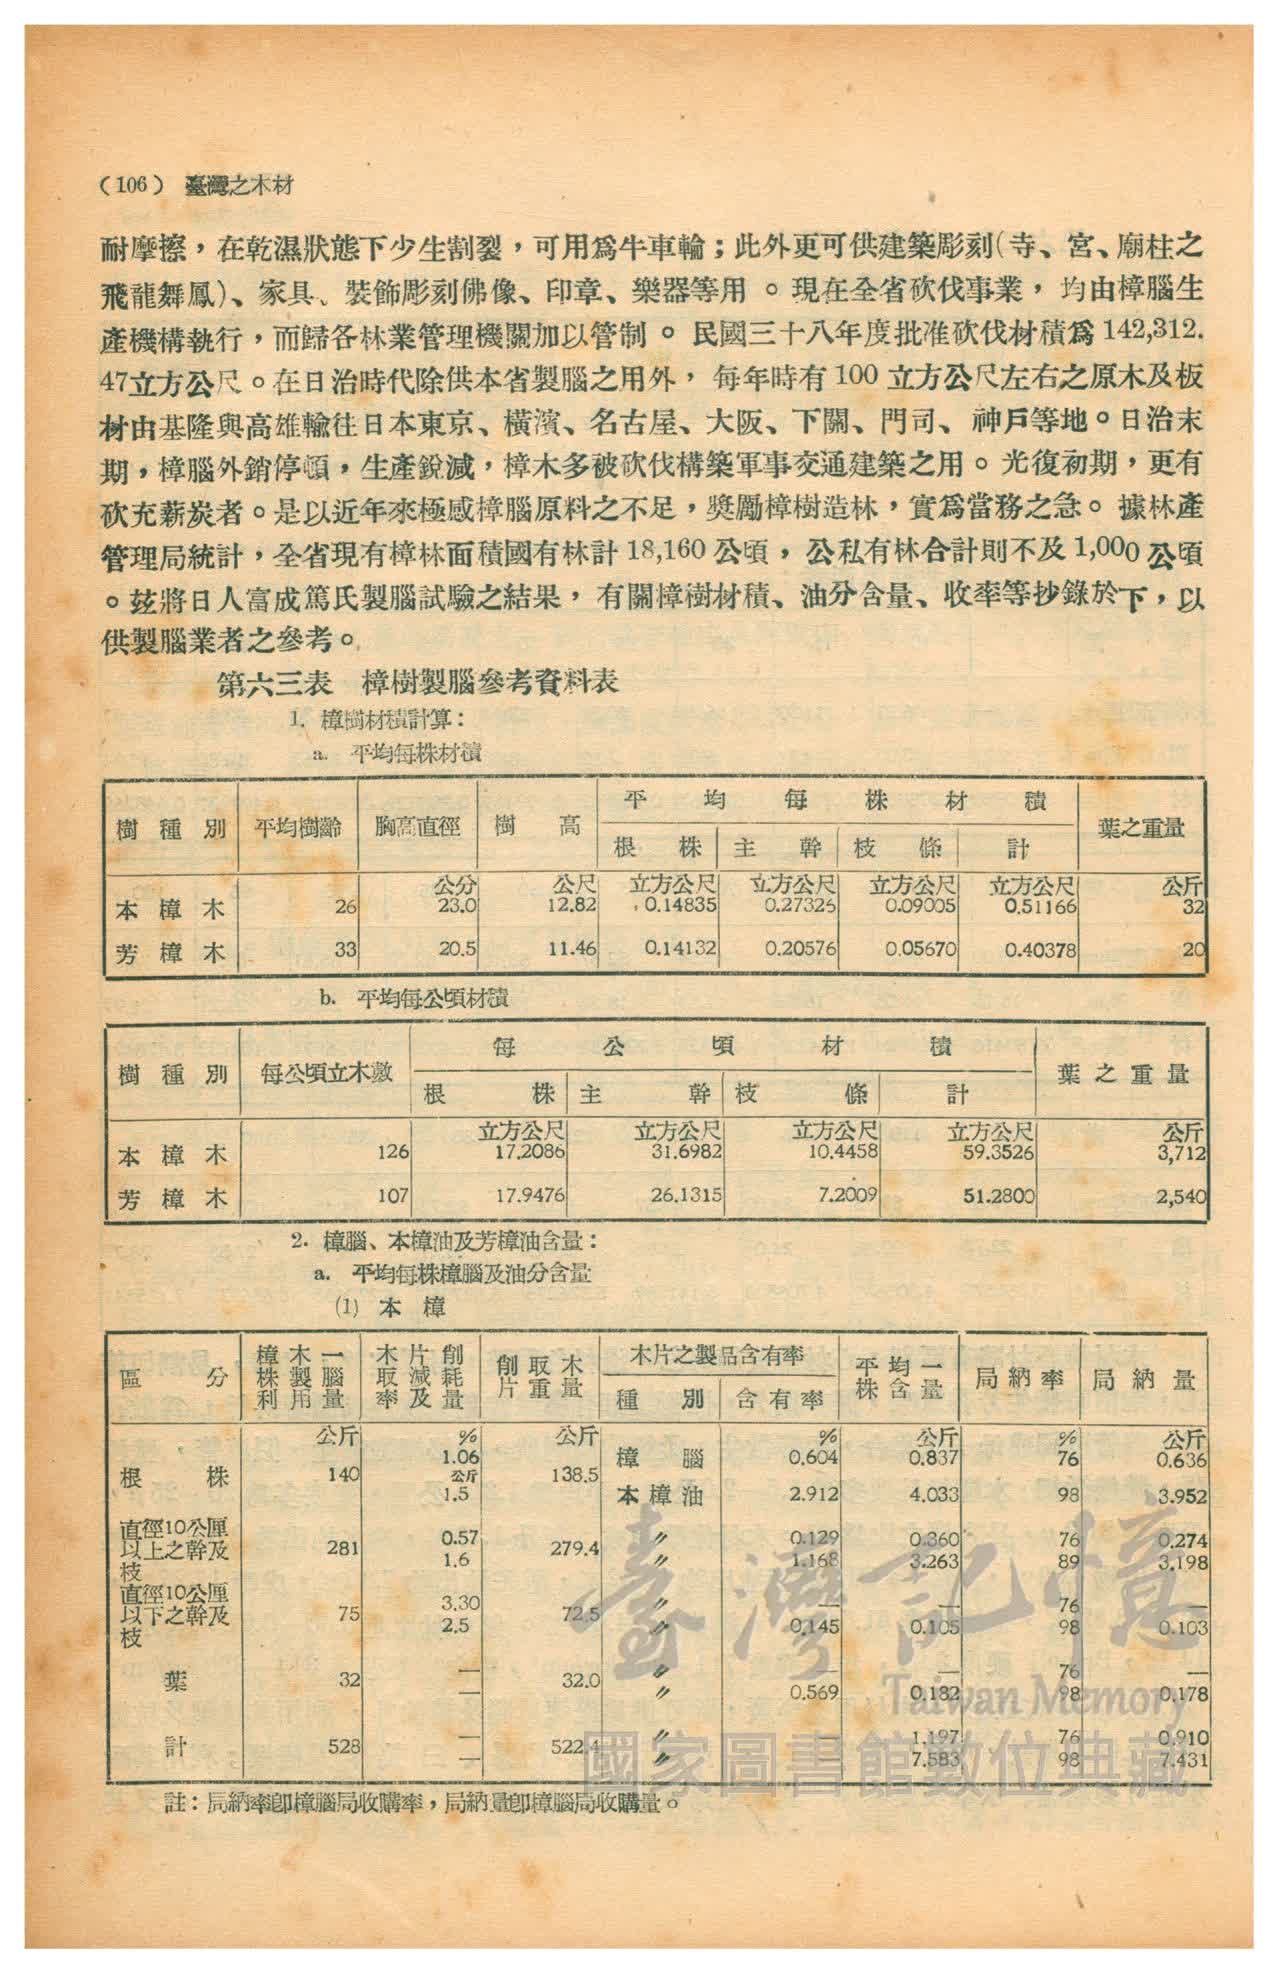 （106） 臺灣之木材
耐摩擦，在乾濕狀態下少生割裂，可用爲牛車輪；此外更可供建築彫刻（寺、宮、廟柱之
飛龍舞鳳）、家具、裝飾彫刻佛像、印章、樂器等用。現在全省砍伐事業，均由樟腦生
產機構執行，而歸各林業管理機關加以管制。民國三十八年度批准砍伐材積爲 142,312.
47立方公尺。在日治時代除供本省製腦之用外，每年時有 100 立方公尺左右之原木及板
材由基隆與高雄輸往日本東京、橫濱、名古屋、大阪、下關、門司、神戶等地。日治末
期，樟腦外銷停頓，生產銳減，樟木多被砍伐構築軍事交通建築之用。光復初期，更有
砍充薪炭者。是以近年來極感樟腦原料之不足，獎勵樟樹造林，實爲當務之急。據林產
管理局統計，全省現有樟林面積國有林計 18,160 公頃，公私有林合計則不及 1,000 公頃
。茲將日人富成篤氏製腦試驗之結果，有關樟樹材積、油分含量、收率等抄錄於下，以
供製腦業者之參考。
第六三表 樟樹製腦參考資料表
1. 樟樹材積計算：
a. 平均每株材積
樹種別 平均樹齡 胸高直徑 樹高 平均每株材積 葉之重量
根株 主幹 枝條 計
公分 公尺 立方公尺 立方公尺 立方公尺 立方公尺 公斤
本樟木 26 23.0 12.82 0.14835 0.27325 0.09005 0.51166 32
芳樟木 33 20.5 11.46 0.14132 0.20576 0.05670 0.40378 20
b. 平均每公頃材積
樹種別 每公頃立木數 每公頃材積 葉之重量
根株 主幹 枝條 計
立方公尺 立方公尺 立方公尺 立方公尺 公斤
本樟木 126 17.2086 31.6982 10.4458 59.3526 3,712
芳樟木 107 17.9476 26.1315 7.2009 51.2800 2,540
2. 樟腦、本樟油及芳樟油含量：
a. 平均每株樟腦及油分含量
(1) 本樟
區分 樟木一株製腦利用量 木片削取減耗率及量 削取木片重量 木片之製品含有率 平均一株含量 局納率 局納量
種別 含有率
公斤 % 公斤 % 公斤 % 公斤
根株 140 1.06 138.5 樟腦 0.604 0.837 76 0.636
公斤
1.5 本樟油 2.912 4.033 98 3.952
直徑10公厘以上之幹及枝 281 0.57 279.4 〃 0.129 0.360 76 0.274
1.6 〃 1.168 3.263 89 3.198
直徑10公厘以下之幹及枝 75 3.30 72.5 〃 — — 76 —
2.5 〃 0.145 0.105 98 0.103
葉 32 — 32.0 〃 — — 76 —
— 〃 0.569 0.182 98 0.178
計 528 — 522.4 〃 — 1.197 76 0.910
— 〃 — 7.583 98 7.431
註：局納率卽樟腦局收購率，局納量卽樟腦局收購量。
臺灣記憶
Taiwan Memory
國家圖書館數位典藏